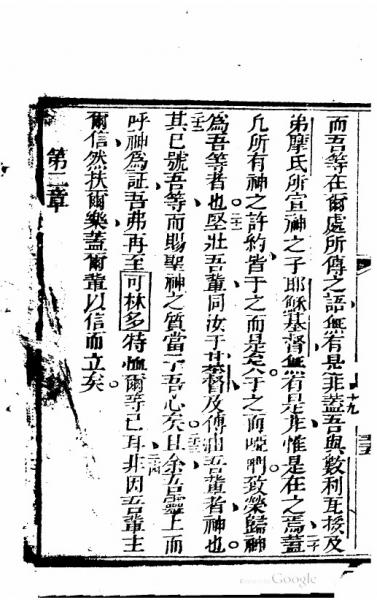 而吾等在爾處所傳之語無有是非蓋吾與數利瓦接及
十九
弟摩氏所宣神之子耶穌基督無有是非惟是在之焉蓋
二十
凡所有神之許約皆于之而是矣于之而啞們致榮歸神
為吾等者也二一堅壯吾輩同汝于基督及傅油吾輩者神也
二二其已號吾等而賜聖神之質當于吾心矣二三且余吾靈上而
呼神為証吾弗再至可林多特恤爾等已耳二四非因吾輩主
爾信然扶爾樂蓋爾輩以信而立矣
第二章
Google